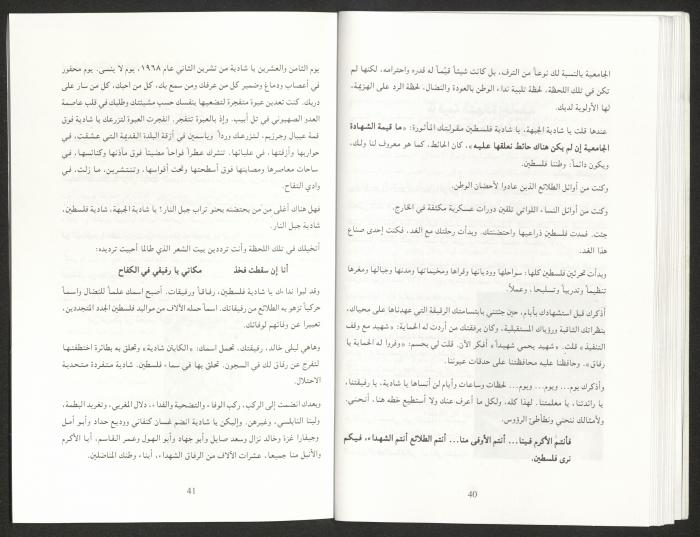 الجامعية بالنسبة لك نوعاً من الترف، بل كانت شيئاً قيّماً له قدره واحترامه، لكنها لم
تكن في تلك اللحظة، لحظة تلبية نداء الوطن بالعودة والنضال، لحظة الرد على الهزيمة،
لها الأولوية لديك.
عندها قلت يا شادية الجبهة، يا شادية فلسطين مقولتك المأثورة: «ما قيمة الشهادة
الجامعية إن لم يكن هناك حائط نعلقها عليه»، كان الحائط، كما هو معروف لنا ولك،
ويكون دائماً: وطننا فلسطين.
وكنت من أوائل الطلائع الذين عادوا لأحضان الوطن.
وكنت من أوائل النساء اللواتي تلقين دورات عسكرية مكثفة في الخارج.
جئت. فمدت فلسطين ذراعيها واحتضنتك. وبدأت رحلتك مع الغد، فكنت إحدى صناع
هذا الغد.
وبدأت تحرثين فلسطين كلها: سواحلها ووديانها وقراها ومخيماتها ومدنها وجبالها ومغرها
تنظيماً وتدريباً وتسليحاً، وعملاً.
أذكرك قبل استشهادك بأيام، حين جئتني بابتسامتك الرقيقة التي عهدناها على محياك،
بنظراتك الثاقبة ورؤياك المستقبلية، وكان برفقتك من أردت له الحماية: «شهيد مع وقف
التنفيذ» قلت. «شهيد يحمي شهيداً» أفكر الآن. قلت لي بحسم: «وفروا له الحماية يا
رفاق». وحافظنا عليه محافظتنا على حدقات عيوننا.
وأذكرك يوم... ويوم.. ويوم... لحظات وساعات وأيام لن أنساها يا شادية، يا رفيقتنا،
يا رائدتنا، يا معلمتنا. لهذا كله، ولكل ما أعرف عنك ولا أستطيع خطه هنا، أنحني.
ولأمثالك ننحني ونطأطئ الرؤوس.
فأنتم الأكرم فينا... أنتم الأوفى منا... أنتم الطلائع أنتم الشهداء، فبيكم
نرى فلسطين.
40
يوم الثامن والعشرين يا شادية من تشرين الثاني عام ١٩٦٨، يوم لا ينسى. يوم محفور
في أعصاب ودماغ وضمير كل من عرفك ومن سمع بك، كل من أحبك، كل من سار على
دربك. كنت تعدين عبوة متفجرة لتضعيها بنفسك حسب مشيئتك وطلبك في قلب عاصمة
العدو الصهيوني في تل أبيب. وإذ بالعبوة تتفجر. انفجرت العبوة لتزرعك يا شادية فوق
قمة عيبال وجرزيم، لتزرعك ورداً وياسمين في أزقة البلدة القديمة التي عشقت، في
حواريها وأزقتها، في علياتها. تنشرك عطراً فواحاً مضيئاً فوق مآذنها وكنائسها، في
ساحات معاصرها ومصابنها فوق أسطحتها وتحت أقواسها، وتنتشرين، ما زلت، في
وادي التفاح.
فهل هناك أغلى من مَن يحتضنه بحنو تراب جبل النار! يا شادية الجبهة، شادية فلسطين،
شادية جبل النار.
أتخيلك في تلك اللحظة وأنت ترددين بيت الشعر الذي طالما أحببت ترديده:
أنا إن سقطت فخذ مكاني يا رفيقي في الكفاح
وقد لبوا نداءك يا شادية فلسطين، رفاقاً ورفيقات. أصبح اسمك علماً للنضال واسماً
حركياً تزهو به الطلائع من رفيقاتك. اسماً حمله الآلاف من مواليد فلسطين الجدد المتجددين،
تعبيرا عن وفائهم لوفائك.
وهاهي ليلى خالد، رفيقتك، تحمل اسمك: «الكابتن شادية» وتحلق به بطائرة اختطفتها
لتفرج عن رفاق لك في السجون. تحلق بها في سماء فلسطين. شادية متفردة متحدية
الاحتلال.
وبعدك انضمت إلى الركب، ركب الوفاء والتضحية والفداء، دلال المغربي، وتغريد البطمة،
ولينا النابلسي، وغيرهن. وإليكن يا شادية انضم غسان كنفاني ووديع حداد وأبو أمل
وجيفارا غزة وخالد نزال وسعد صايل وأبو جهاد وأبو الهول وعمر القاسم. أيا الأكرم
والأنبل منا جميعا، عشرات الآلاف من الرفاق الشهداء، أبناء وطنك المناضلين.
41